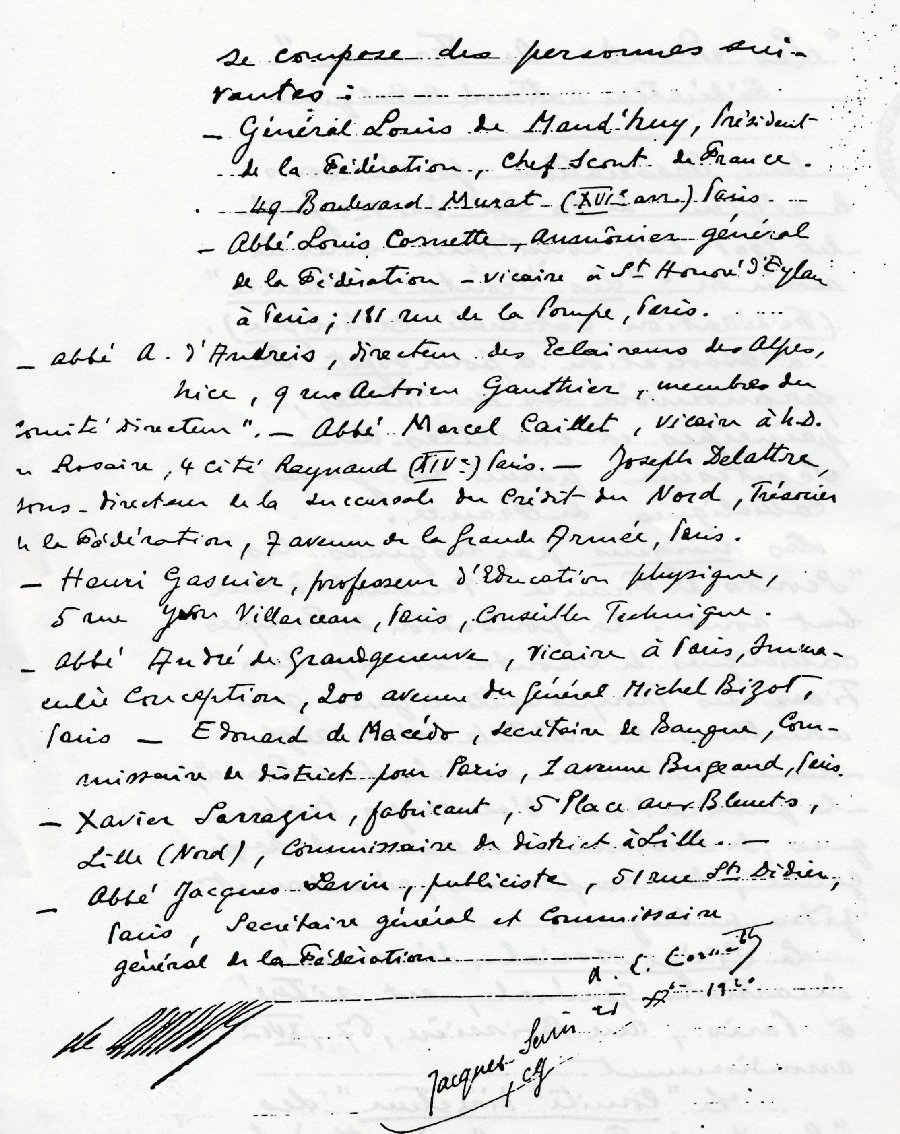 se compose des personnes sui-
vantes :
— Général Louis de Maud'huy, Président
de la Fédération, Chef Scout de France.
49 Boulevard Murat (XVIe arr.) Paris.
— Abbé Louis Cornette, aumônier général
de la Fédération — vicaire à St Honoré d'Eylau
à Paris ; 181 rue de la Pompe, Paris.
— abbé A. d'Andreis, directeur des Eclaireurs des Alpes,
Nice, 9 rue Antoine Gauthier, membres du
Comité Directeur". — Abbé Marcel Caillet, vicaire à N.D.
Rosaire, 4 cité Raynaud (XIVe) Paris. — Joseph Delattre,
sous-directeur de la succursale du Crédit du Nord, Trésorier
la Fédération, 7 avenue de la Grande Armée, Paris.
— Henri Gasnier, professeur d'Education physique,
5 rue Yvon Villarceau, Paris, Conseiller Technique.
— Abbé André de Grandgeneuve, vicaire à Paris, Imma-
culée Conception, 200 avenue du Général Michel Bizot,
Paris — Edouard de Macédo, secrétaire de Banque, Com-
missaire de district pour Paris, 1 avenue Bugeaud, Paris.
— Xavier Sarrazin, fabricant, 5 Place aux Bleuets,
Lille (Nord), Commissaire de district à Lille. —
— Abbé Jacques Sevin, publiciste, 51 rue St Didier,
Paris, Secrétaire général et Commissaire
général de la Fédération.
Cornette
1920
Jacques Sevin
cg